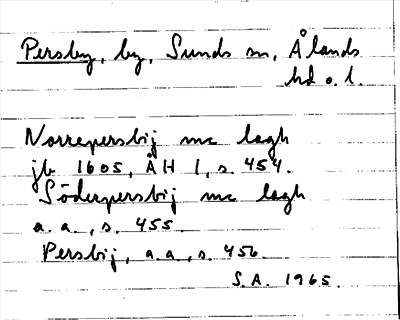 Persby, by, Sunds sn, Ålands
hd o. l.
Norrepersbij mc lagh
jb 1605, ÅH 1, s. 454.
Söderpersbij mc lagh
a. a., s. 455.
Persbij, a.a., s. 456.
S.A. 1965.